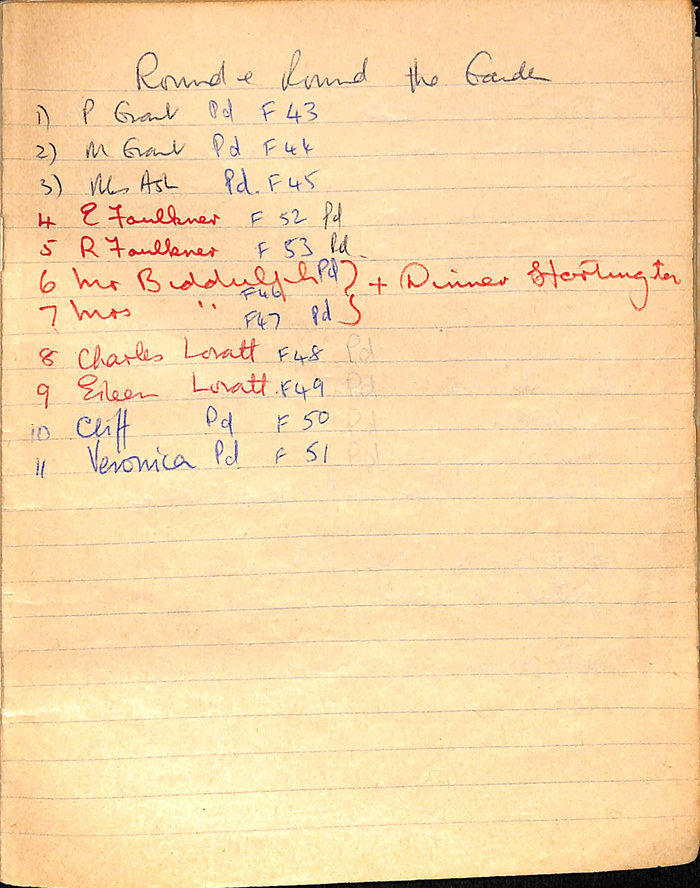 Round + Round the Garden
1) P Grant Pd F 43
2) M Grant Pd F 44
3) Mrs Ash Pd. F 45
4 E Faulkner F 52 Pd
5 R Faulkner F 53 Pd
6 Mr Biddulph Pd F46 } + Dinner
7 Mrs " F47 Pd }
8 Charles Lovatt F48 Pd
9 Eileen Lovatt F49 Pd
10 Cliff Pd F 50 Pd
11 Veronica Pd F 51 Pd